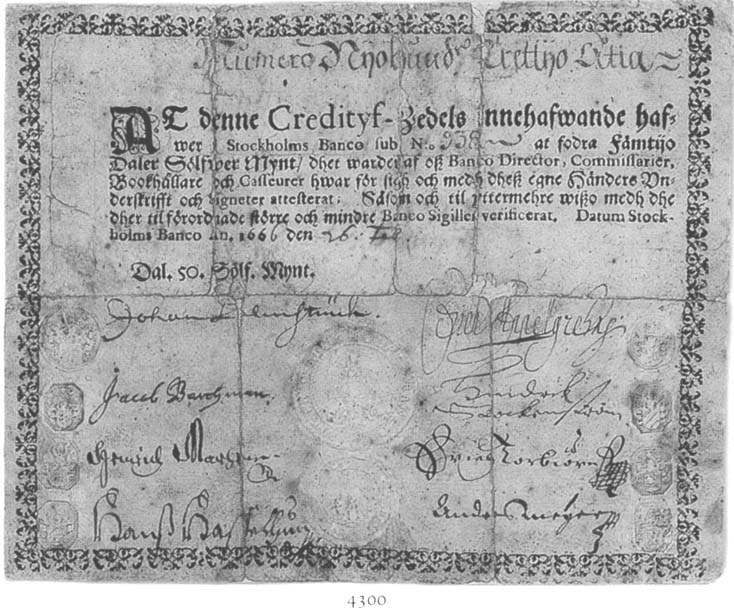 Numero Nyohund Trettijo
AT denne Credityf-Zedels Innehafwande haf-
wer i Stockholms Banco sub N:o 938 at fodra Fämtijo
Daler Sölfwer Mynt/ dhet warder af oß Banco Director, Commissarier,
Bookhållare och Casseurer hwar för sigh och medh dheß egne Händers Vn-
derskrifft och Signeter attesterat; Såsom och til yttermehre wißo medh dhe
dher til förordnade större och mindre Banco Sigillet verificerat. Datum Stock-
holms Banco An. 1666 den 26.
Dal. 50. Sölf. Mynt.
Johan
Jacob
Hendrick
Anders Meyer
Hanß
4300